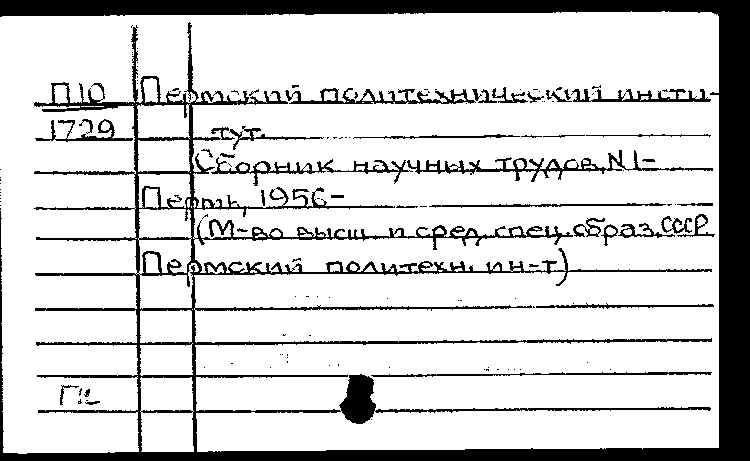 П10 Пермский политехнический инсти-
1729 тут.
Сборник научных трудов, N 1-
Пермь, 1956-
(М-во высш и сред. спец. образ. СССР
Пермский политехн. ин-т)